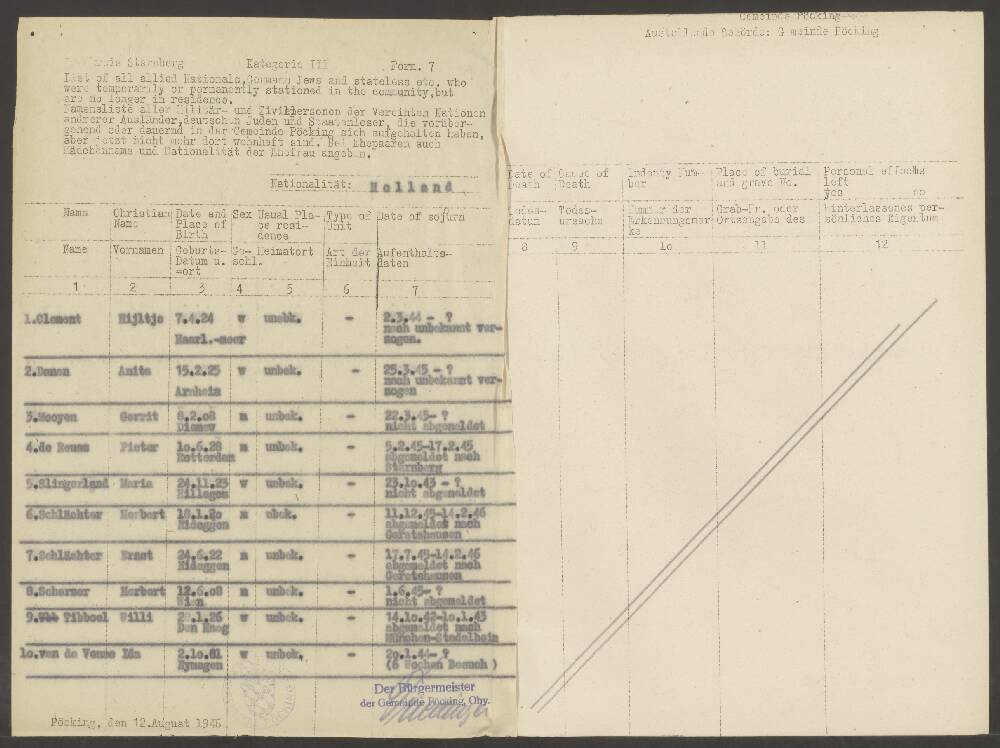 Starnberg Kategorie III Form. 7
List of all allied Nationals, Germann Jews and stateless etc. who
were temporarily or permanently stationed in the community, but
are no longer in residence.
Namensliste aller Militär- und Zivilpersonen der Vereinten Nationen
anderer Ausländer, deutschen Juden und Staatenloser, die vorüber-
gehend oder dauernd in der Gemeinde Pöcking sich aufgehalten haben,
aber jetzt nicht mehr dort wohnhaft sind. Bei Ehepaaren auch
Mädchenname und Nationalität der Ehefrau angeben.
Nationalität: Holland
Name Christian Name Date and Place of Birth Sex Usual Pla- ce resi- dence Type of Unit Date of sojurn
Name Vornamen Geburts- Datum u. =ort Ge- schl. Heimatort Art der Einheit Aufenthalts- daten
1 2 3 4 5 6 7
1.Clement Hijltje 7.4.24 w unbk. - 2.3.44 - ?
Haarl.-meer nach unbekannt ver-
zogen.
2. Anita 15.2.25 w unbek. - 25.3.45 - ?
Arnheim nach unbekannt ver-
zogen
3.Mooyen Gerrit 8.2.08 m unbek. - 22.3.45- ?
nicht abgemeldet
4.de Pieter 10.6.28 m unbek. - 5.2.45-17.2.45
Rotterdam abgemeldet nach
Starnberg
5.Slingerland Maria 24.11.23 w unbek. - 23.10.43 - ?
Hillegom nicht abgemeldet
6.Schlächter Herbert 18.1.20 m ubek. - 11.12.45-14.2.46
Nideggen abgemeldet nach
Garatshausen
7.Schlächter Ernst 24.6.22 m unbek. - 17.7.45-14.2.46
Nideggen abgemeldet nach
Garatshausen
8. Herbert 12.6.08 m unbek. - 1.6.45- ?
Wien nicht abgemeldet
9. Tibboel Willi .1.26 w unbek. - 14.10.42-10.1.43
Den Haag abgemeldet nach
München-Stadelheim
10.van de Ida 2.10.81 w unbek. - 20.1.44- ?
Nymagen (6 Wochen Besuch )
Der Bürgermeister
der Gemeinde Pöcking, Oby.
Pöcking, den 12.August 1946
Gemeinde Pöcking
Ausstellende Behörde: Gemeinde Pöcking
Date of Death Cause of Death Indenty Num- ber Place of burial and grave No. Personal effects left yes no
Todes- datum Todes- ursache Nummer der Erkennungsmar- ke Grab-Nr. oder Ortsangabe des hinterlassenes per- sönliches Eigentum
8 9 10 11 12